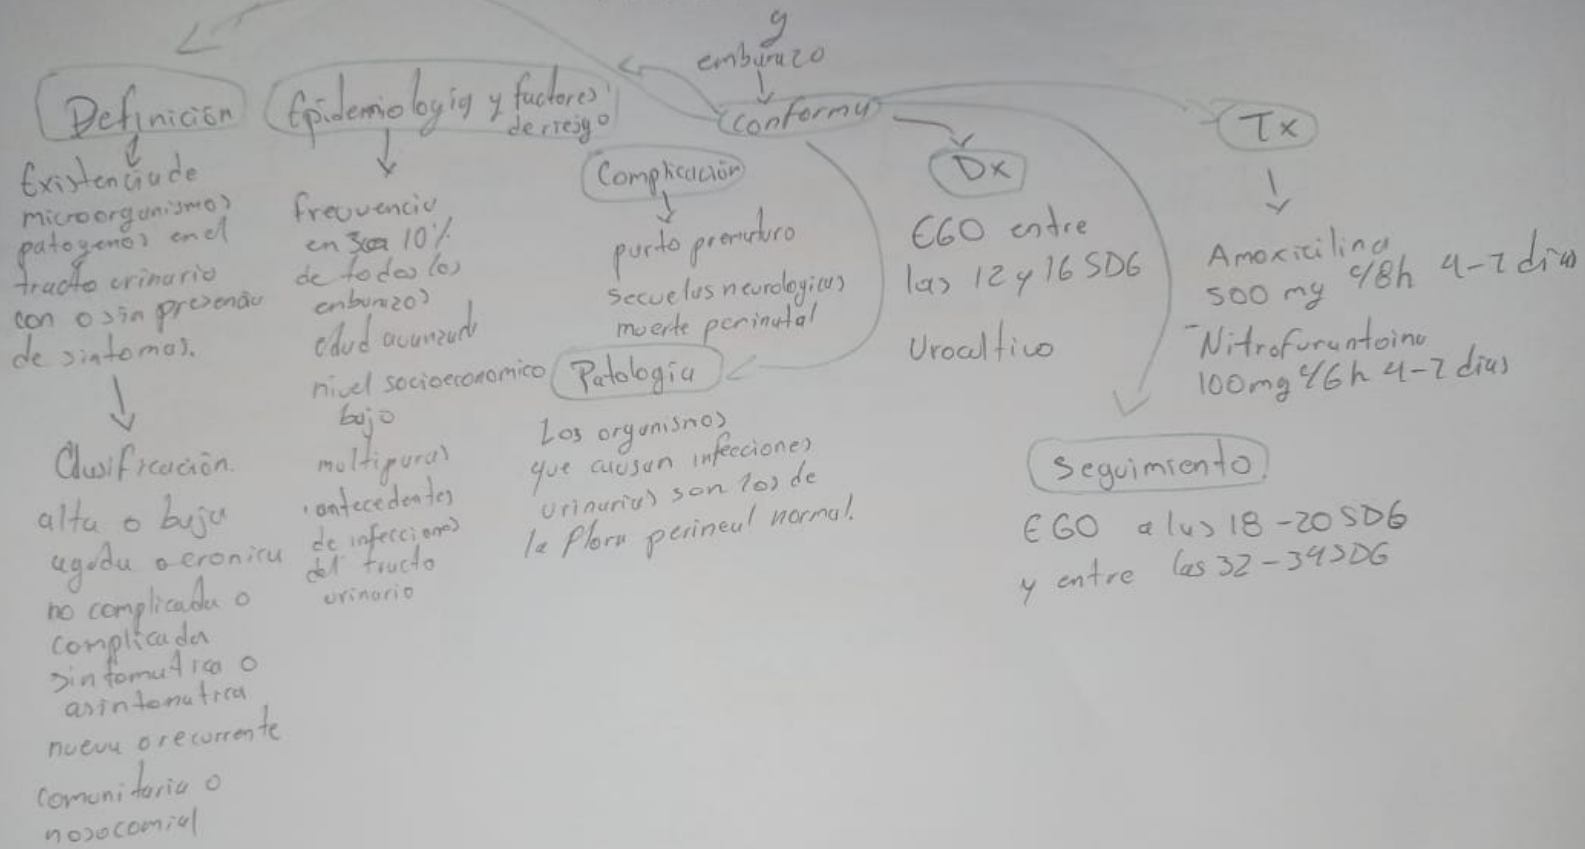 y
embarazo
conforma
Definición
Existencia de
microorganismos
patogenos en el
tracto urinario
con o sin presencia
de sintomas.
Clasificación.
alta o baja
aguda o cronica
no complicada o
complicada
sintomatica o
asintomatica
nueva o recurrente
comunitaria o
nosocomial
Epidemiologia y factores
de riesgo
frecuencia
en 10%
de todos los
embarazos
edad avanzada
nivel socioeconomico
bajo
multiparas
antecedentes
de infecciones
del tracto
urinario
Complicación
parto prematuro
secuelas neurologicas
muerte perinatal
Patologia
Los organismos
que causan infecciones
urinarias son los de
la flora perineal normal.
Dx
EGO entre
las 12 y 16 SDG
Urocultivo
Tx
Amoxicilina
500 mg c/8h 4-7 dias
-Nitrofurantoina
100mg c/6h 4-7 dias
Seguimiento
EGO a las 18-20 SDG
y entre las 32-34 SDG